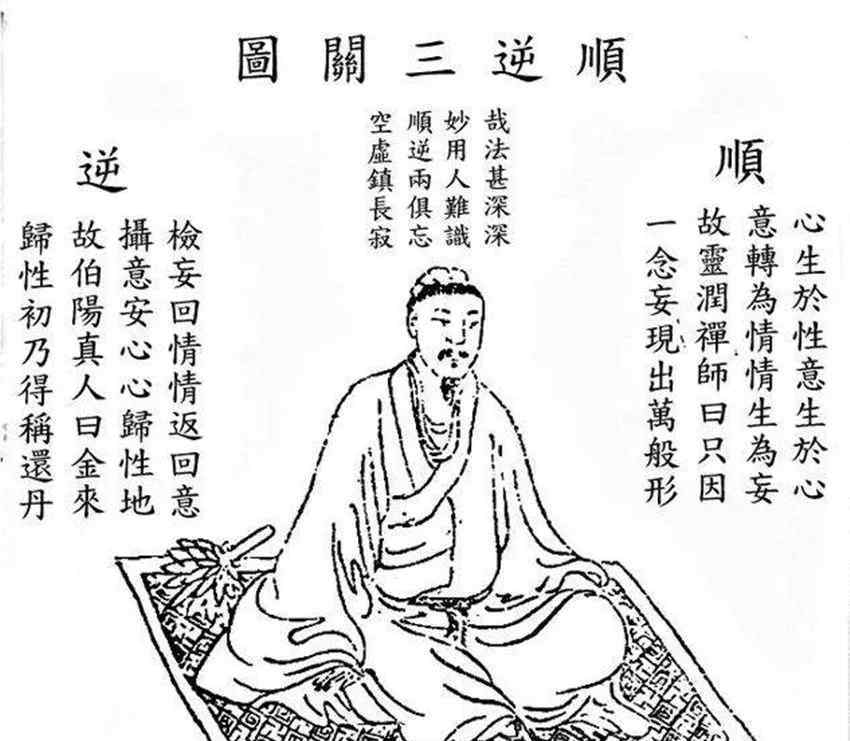 順逆三關圖
順
心生於性意生於心
意轉為情情生為妄
故靈潤禪師曰只因
一念妄現出萬般形
哉法甚深深
妙用人難識
順逆兩俱忘
空虛鎮長寂
逆
檢妄回情情返回意
攝意安心心歸性地
故伯陽真人曰金來
歸性初乃得稱還丹